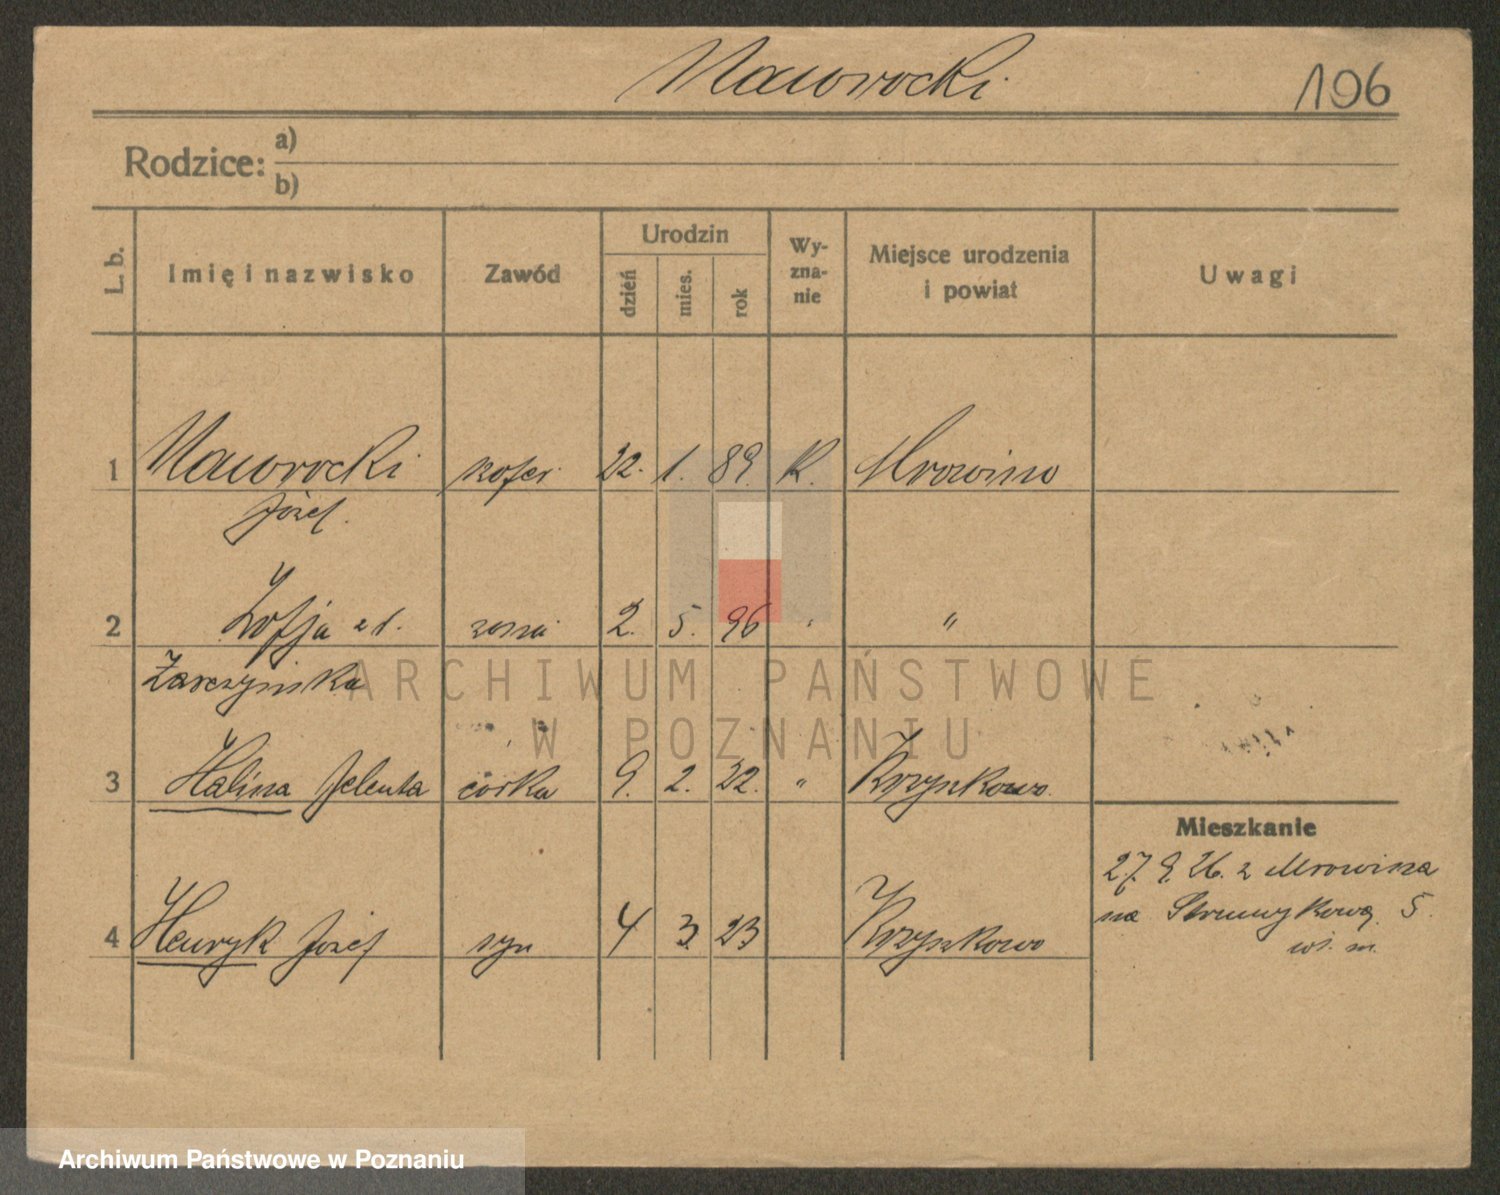 Nawrocki 196
Rodzice: a)
b)
L. b. Imię i nazwisko Zawód Urodzin dzień mies. rok Wy-zna-nie Miejsce urodzenia i powiat Uwagi
1 Nawrocki 22. 1. 89. K. Mrowino
Józef.
2 Zofja 2. 5. 96 " "
3 Halina córka 9. 2. 22. " Krzynkowo.
Mieszkanie
27. 9. 26. z Mrowina
na 5.
4 Henryk Józef syn 4 3. 23 Krzynkowo
ARCHIWUM PAŃSTWOWE
W POZNANIU
Archiwum Państwowe w Poznaniu